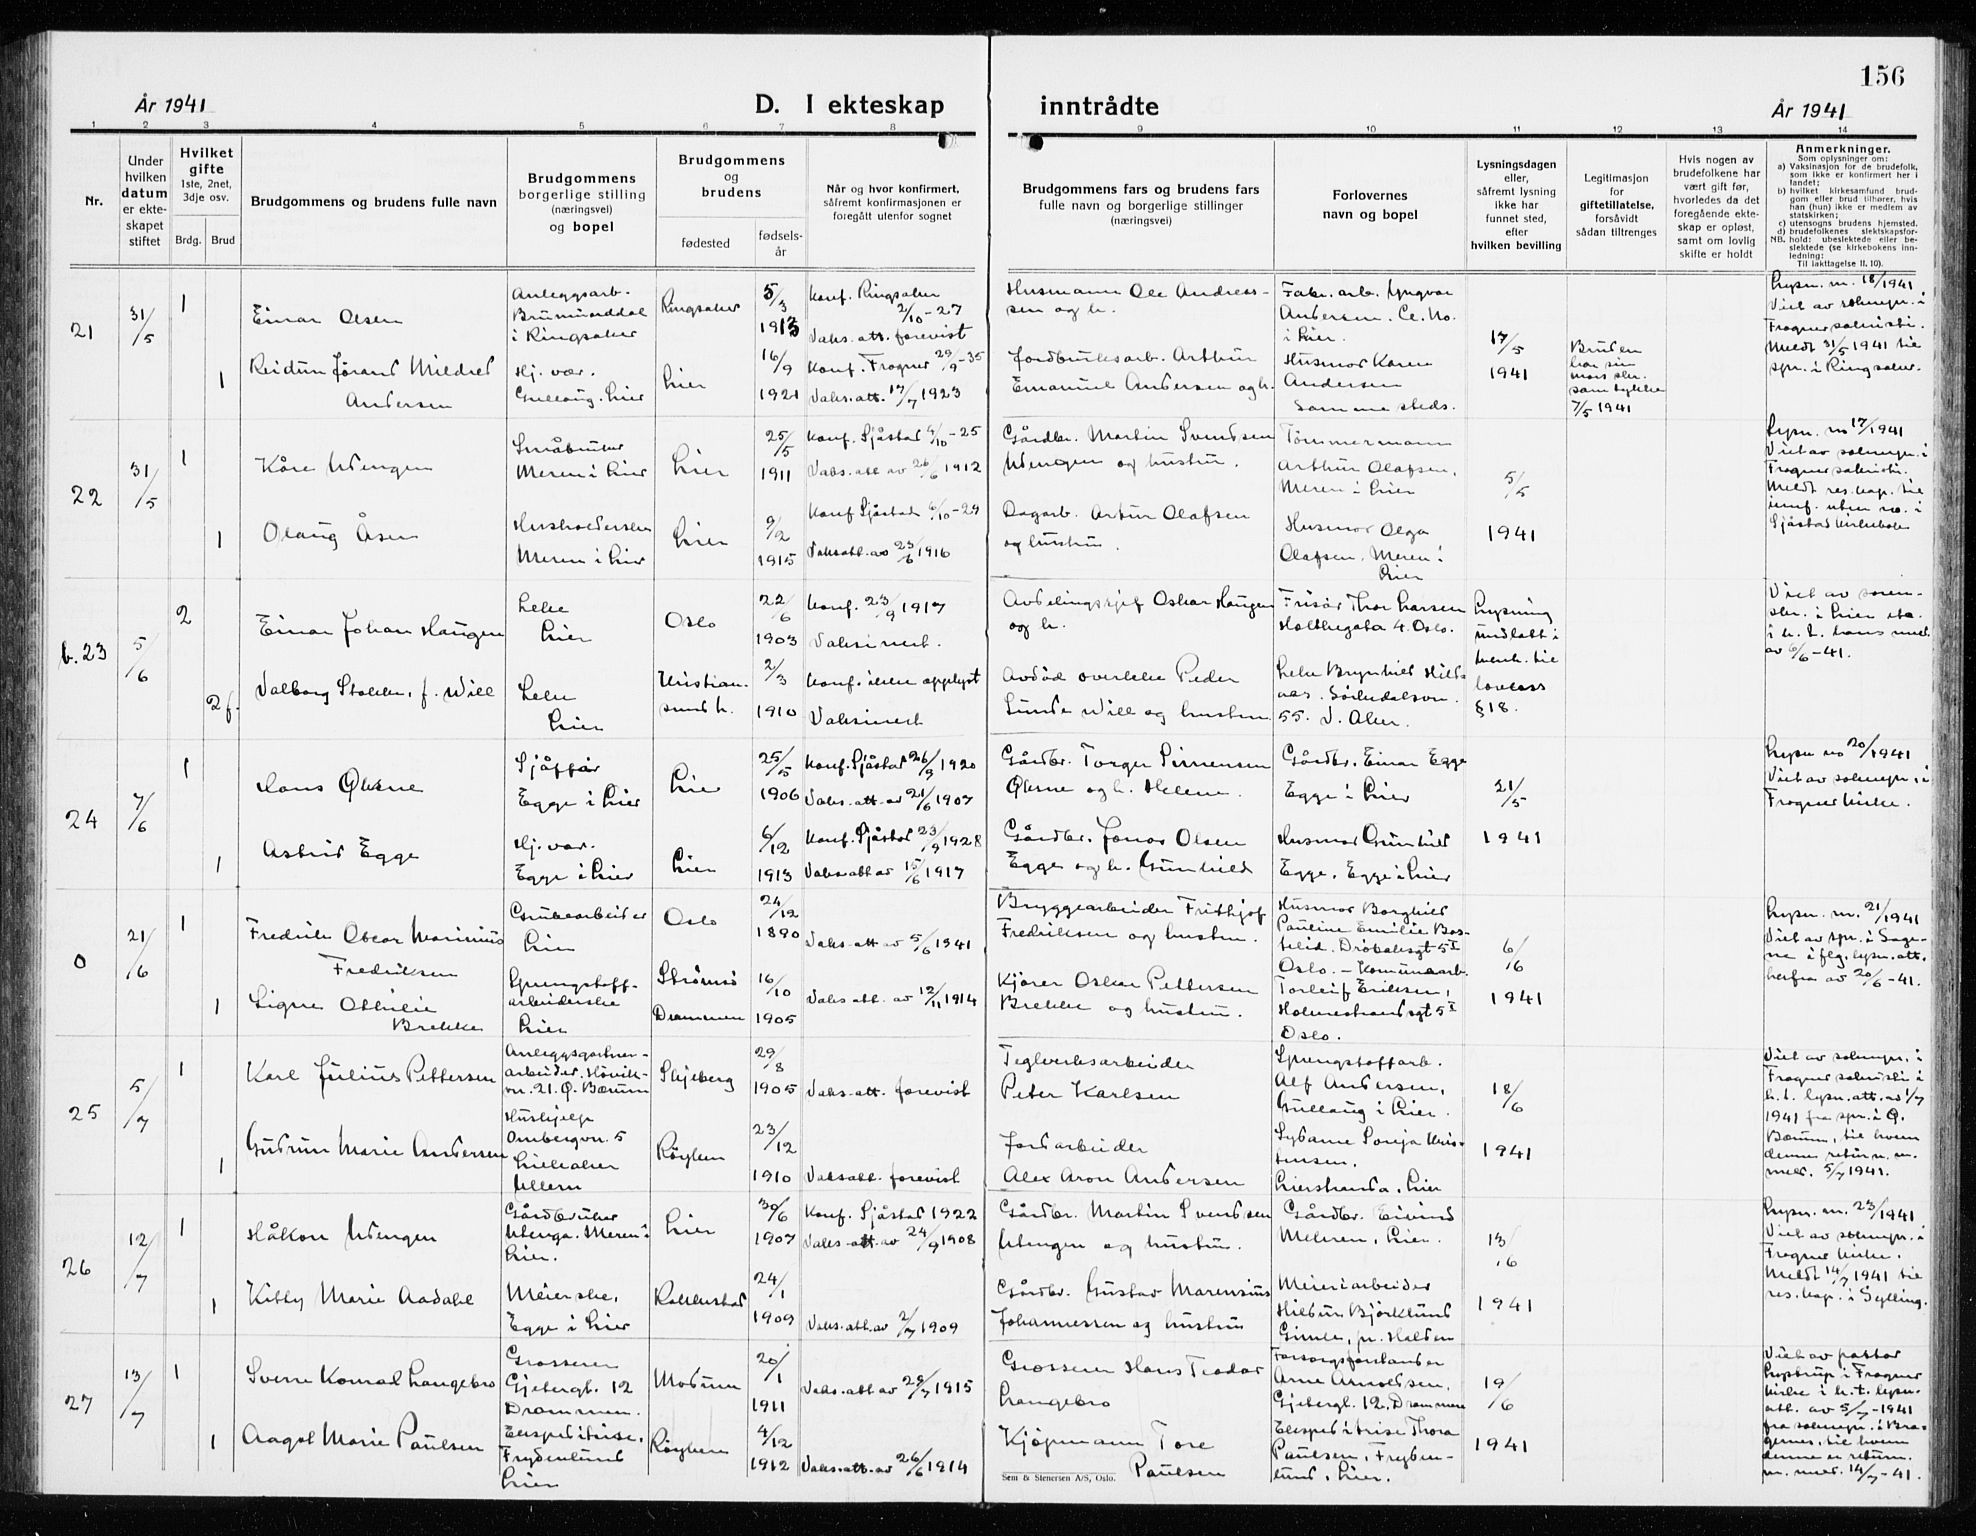 156
År 1941
D. I ekteskap inntrådte
År 1941
1 2 3 4 5 6 7 8 9 10 11 12 13 14
Nr.
Under hvilken datum er ekteskapet stiftet
Hvilket gifte
1ste, 2net, 3dje osv.
Brdg. Brud
Brudgommens og brudens fulle navn
Brudgommens borgerlige stilling (næringsvei) og bopel
Brudgommens og brudens
fødested
fødselsår
Når og hvor konfirmert, såfremt konfirmasjonen er foregått utenfor sognet
Brudgommens fars og brudens fars fulle navn og borgerlige stillinger (næringsvei)
Forlovernes navn og bopel
Lysningsdagen eller, såfremt lysning ikke har funnet sted, efter hvilken bevilling
Legitimasjon for giftetillatelse, forsåvidt sådan tiltrenges
Hvis nogen av brudefolkene har vært gift før, hvorledes da det foregående ekteskap er opløst, samt om lovlig skifte er holdt
Anmerkninger.
Som oplysninger om:
a) Vaksinasjon for de brudefolk, som ikke er konfirmert her i landet;
b) hvilket kirkesamfund brudgom eller brud tilhører, hvis han (hun) ikke er medlem av statskirken;
c) utensogns brudens hjemsted.
d) brudefolkenes slektskapsforhold: ubeslektede eller beslektede (se kirkebokens innledning:
NB.
Til iakttagelse II. 10).
21
31/5
1
Einar Olsen
Anleggsarb.
Brumunddal
i Ringsaker
Ringsaker
5/3
1913
Konf. Ringsaker
2/10-27
Vaks. att. forevist
Husmann Ole Andreas-
sen og h.
Fabr. arb. Yngvar
Andersen.
i Lier.
17/5
1941
Bruden
har sin
mors skr.
samtykke
7/5 1941
Lysn. nr. 18/1941
Viet av soknepr. i
Frogner sakristi.
Meldt 31/5 1941 til
spr. i Ringsaker.
1
Reidun Jørand Mildred
Andersen
Hj. vær.
Gullaug. Lier
Lier
16/9
1921
Konf. Frogner 29/9-35
Vaks. att. 17/7 1923
Jordbruksarb. Arthur
Emanuel Andersen og h.
Husmor Karen
Andersen
samme steds.
22
31/5
1
Kåre Wengen
Småbruker
Meren i Lier
Lier
25/5
1911
Konf. Sjåstad 4/10-25
Vaks. att av 26/6 1912
Gårdbr. Martin Svendsen
Wengen og hustru.
Tømmermann
Arthur Olafsen,
Meren i Lier
5/5
1941
Lysn. no 17/1941
Viet av soknepr. i
Frogner sakristi.
Meldt res. kap. til
innf. uten no. i
Sjåstad kirkebok
1
Olaug Åsen
Husholderske
Meren i Lier
Lier
9/2
1915
Konf Sjåstad 6/10-29
Vaks att. av 23/6 1916
Dagarb. Artur Olafsen
og hustru.
Husmor Olga
Olafsen, Meren i
Lier
b.23
5/6
2
Einar Johan Haugen
Lege
Lier
Oslo
22/6
1903
Konf. 23/9 1917
Vaksinert.
Avdelingssjef Oskar Haugen
og h.
Frisør Thor Larsen
Holtegata 4. Oslo.
Lysning
undlatt i
henh. til
lovens
§ 18.
Viet av soren-
skr. i Lier etc.
i h. t. hans med.
av 6/6-41.
2 f.
Valborg Stokke, f. Will
Lege
Lier
Kristian-
sund h.
2/3
1910
Konf. ikke opplyst
Vaksinert
Avdød overlege Peder
Lunde Will og hustru
Lege Brynhild Hild-
aas. Sørkedalsvn.
55. V. Aker.
24
7/6
1
Lars Øksne
Sjåffør
Egge i Lier
Lier
25/5
1906
Konf. Sjåstad 26/9 1920
Vaks. att. av 21/6 1907
Gårdbr. Torger Simensen
Øksne og h. Helene.
Gårdbr. Einar Egge
Egge i Lier
21/5
1941
Lysn no 20/1941
Viet av soknepr. i
Frogner kirke.
1
Astrid Egge
Hj. vær.
Egge i Lier
Lier
6/12
1913
Konf. Sjåstad 23/9 1928
Vaks att av 15/6 1917
Gårdbr. Jonas Olsen
Egge og h. Gunhild
Husmor Gunhild
Egge, Egge i Lier
0
21/6
1
Fredrik Oscar Marinius
Fredriksen
Grubearbeider
Lier
Oslo
24/12
1890
Vaks-att av 5/6 1941
Bryggearbeider Frithjof
Fredriksen og hustru.
Husmor Borghild
Pauline Emilie Bos-
Oslo. - Komunearb.
6/6
1941
Lysn. nr. 21/1941
Viet av spr. i Sage-
ne iflg. lysn. att.
herfra av 20/6-41.
1
Signe Othilie
Brekke
Sprengstoff-
arbeiderske
Lier
Strømsø
Drammen
16/10
1905
Vaks att. av 12/11 1914
Kjører Oskar Pettersen
Brekke og hustru.
Torleif Eriksen,
Holmestrandsgt 5 I
Oslo.
25
5/7
1
Karl Julius Pettersen
Anleggsgartner-
arbeider. Høvik-
vn. 21. Ø. Bærum
Skjeberg
29/8
1905
Vaks-att. forevist
Teglverksarbeider
Peter Karlsen
Sprengstoffarb.
Alf Andersen,
Gullaug i Lier.
18/6
1941
Viet av soknepr. i
Frogner sakristi i
h. t. lysn. att. av 1/7
1941 fra spr. i Ø.
Bærum, til hvem
denne return. m.
meld. 5/7 1941.
1
Gudrun Marie Andersen
Hushjelp
Ombergvn. 5
Lilleaker
Ullern
Røyken
23/12
1910
Vaksatt. forevist
Jordarbeider
Alex Aron Andersen
Sydame Sonja Kris-
tensen.
Lierstranda, Lier
26
12/7
1
Håkon Wengen
Gårdbruker
Meren i
Lier.
Lier
30/6
1907
Konf. Sjåstad 1922
Vaks-att. av 24/9 1908
Gårdbr. Martin Svendsen
Wengen og hustru.
Gårdbr. Eivind
Lier.
13/6
1941
Lysn. nr. 23/1941
Viet av soknepr. i
Frogner kirke.
Meldt 14/7 1941 til
res. kap. i Sylling.
1
Kitty Marie Aadahl
Meierske,
Egge i Lier
Rakkestad
24/1
1909
Vaks. att. av 2/7 1909
Gårdbr. Gustav Marensius
Johannessen og hustru
Meieriarbeider
Hildur Bjørklund
Gimle, pr. Halden
27
13/7
1
Sverre Konrad Langebro
Grosserer
Gjetergt. 12
Drammen.
Modum
20/1
1911
Vaks. att av 29/7 1915
Grosserer Hans Teodor
Langebro
Forsorgsforstander
Arne Arnoldsen,
Gjetergt. 12, Drammen
19/6
1941
Viet av pastor
Lystrup i Frogner
kirke i h. t. lysn.
att. av 5/7-1941
fra soknepr. i Bra-
gernes, til hvem
denne er return.
m. med. 14/7-41.
1
Aagot Marie Paulsen
Ekspeditrise,
Frydenlund
Lier
Røyken
4/12
1912
Vaks. att. av 26/6 1914
Kjøpmann Tore
Paulsen
Ekspeditrise Thora
Paulsen, Fryden-
lund, Lier.
Sem & Stenersen A/S, Oslo.